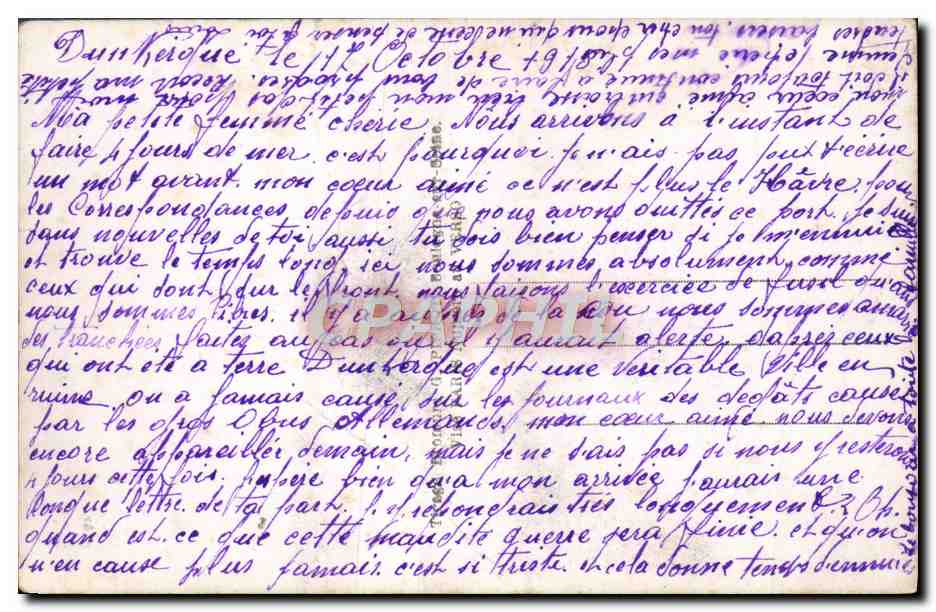 Dunkerque le 17 Octobre 1918
Ma petite femme chérie. Nous arrivons à l'instant de
faire 4 jours de mer. c'est pourquoi je n'ais pas put t'écrire
un mot avant. mon cœur aimé ce n'est plus le Hâvre pour
les correspondances depuis que nous avons quittés ce port. je suis
sans nouvelles de toi aussi tu dois bien penser si je m'ennuie
et trouve le temps long ici nous sommes absolument comme
ceux qui sont sur le front nous faisons l'exercice de fusil quand
nous sommes libres. il y a de la nous sommes
des tranchées faites au cas où il y aurait alerte. d'après ceux
qui ont été a terre Dunkerque est une véritable ville en
ruine. on a jamais causé sur les journaux des dégâts causé
par les gros obus Allemands. mon cœur aimé nous devons
encore appareiller demain, mais je ne sais pas si nous y resterons
4 jours cette fois. j'espère bien qu'a mon arrivée j'aurais une
longue lettre de ta part. je répondrais très longuement. Oh.
quand est. ce que cette maudite guerre sera finie. et qu'on
n'en cause plus jamais. c'est si triste. et cela donne temps d'ennuie
CPARHIL
mon cœur aimé embrasse bien mon petit gas pour moi
il doit toujours continué à faire de bons progrès. Reçoit ma petite
femme chérie mes
tendres baisers. ton cher époux qui ne cesse de penser à toi